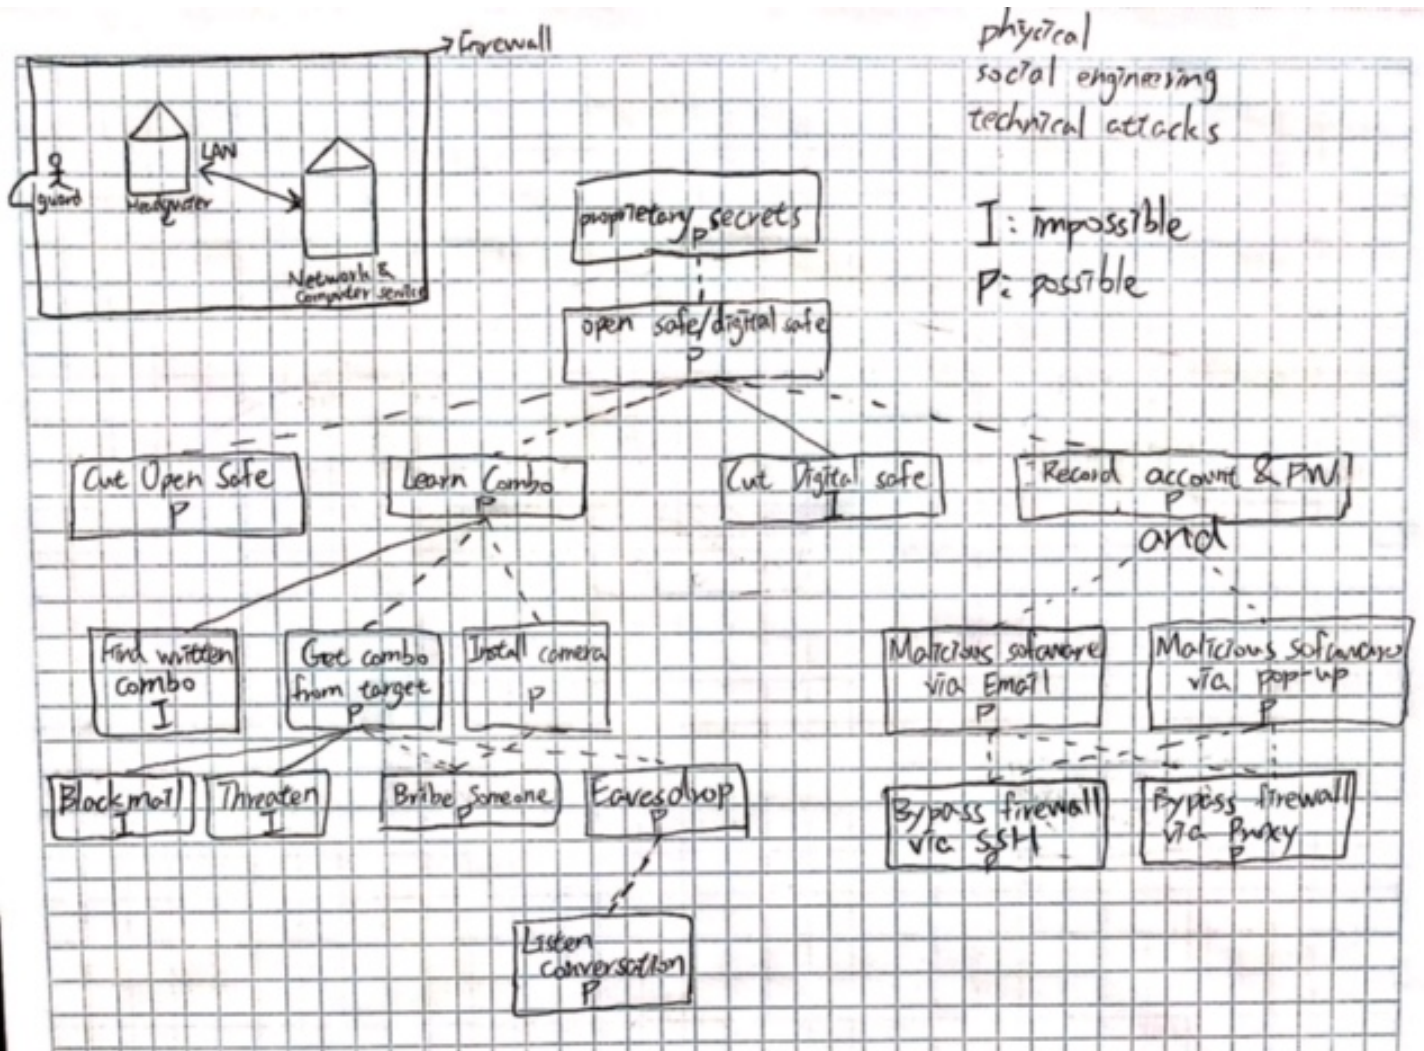 Firewall
LAN
guard
Headquater
Network &
Computer service
physical
social engineering
technical attacks
I: impossible
P: possible
proprietary secrets
P
open safe/digital safe
P
Cut Open Safe
P
Learn Combo
P
Cut Digital safe
I
Record account & PW
P
and
Find written
combo
I
Get combo
from target
P
Install camera
P
Malicious sofaware
via Email
P
Malicious sofaware
via pop-up
P
Blackmail
I
Threaten
I
Bribe Someone
P
Eavesdrop
P
Bypass firewall
via SSH
P
Bypass firewall
via Proxy
P
Listen
conversation
P